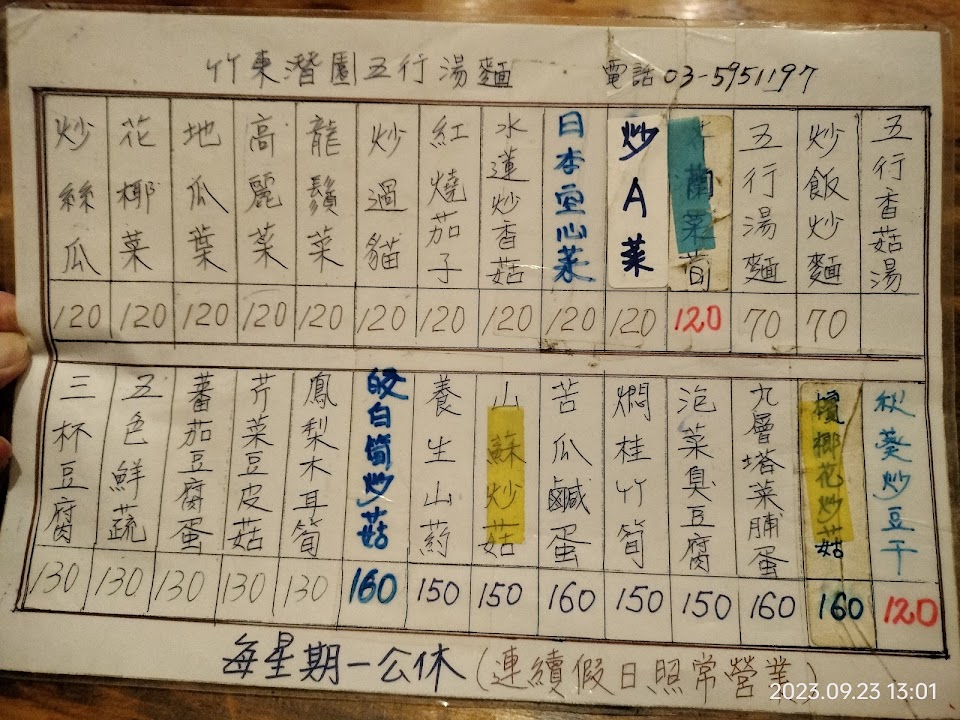 竹東潛園五行湯麵 電話03-5951197
五行香菇湯
炒飯炒麵
70
五行湯麵
70
蘭菜
120
炒A菜
120
日本空心菜
120
水蓮炒香菇
120
紅燒茄子
120
炒過貓
120
龍鬚菜
120
高麗菜
120
地瓜葉
120
花椰菜
120
炒絲瓜
120
秋葵炒豆干
120
檳榔花炒菇
160
九層塔菜脯蛋
160
泡菜臭豆腐
150
燜桂竹筍
150
苦瓜鹹蛋
160
山蘇炒菇
150
養生山葯
150
皎白筍炒菇
160
鳳梨木耳筍
130
芹菜豆皮菇
130
蕃茄豆腐蛋
130
五色鮮蔬
130
三杯豆腐
130
每星期一公休(連續假日照常營業)
2023.09.23 13:01